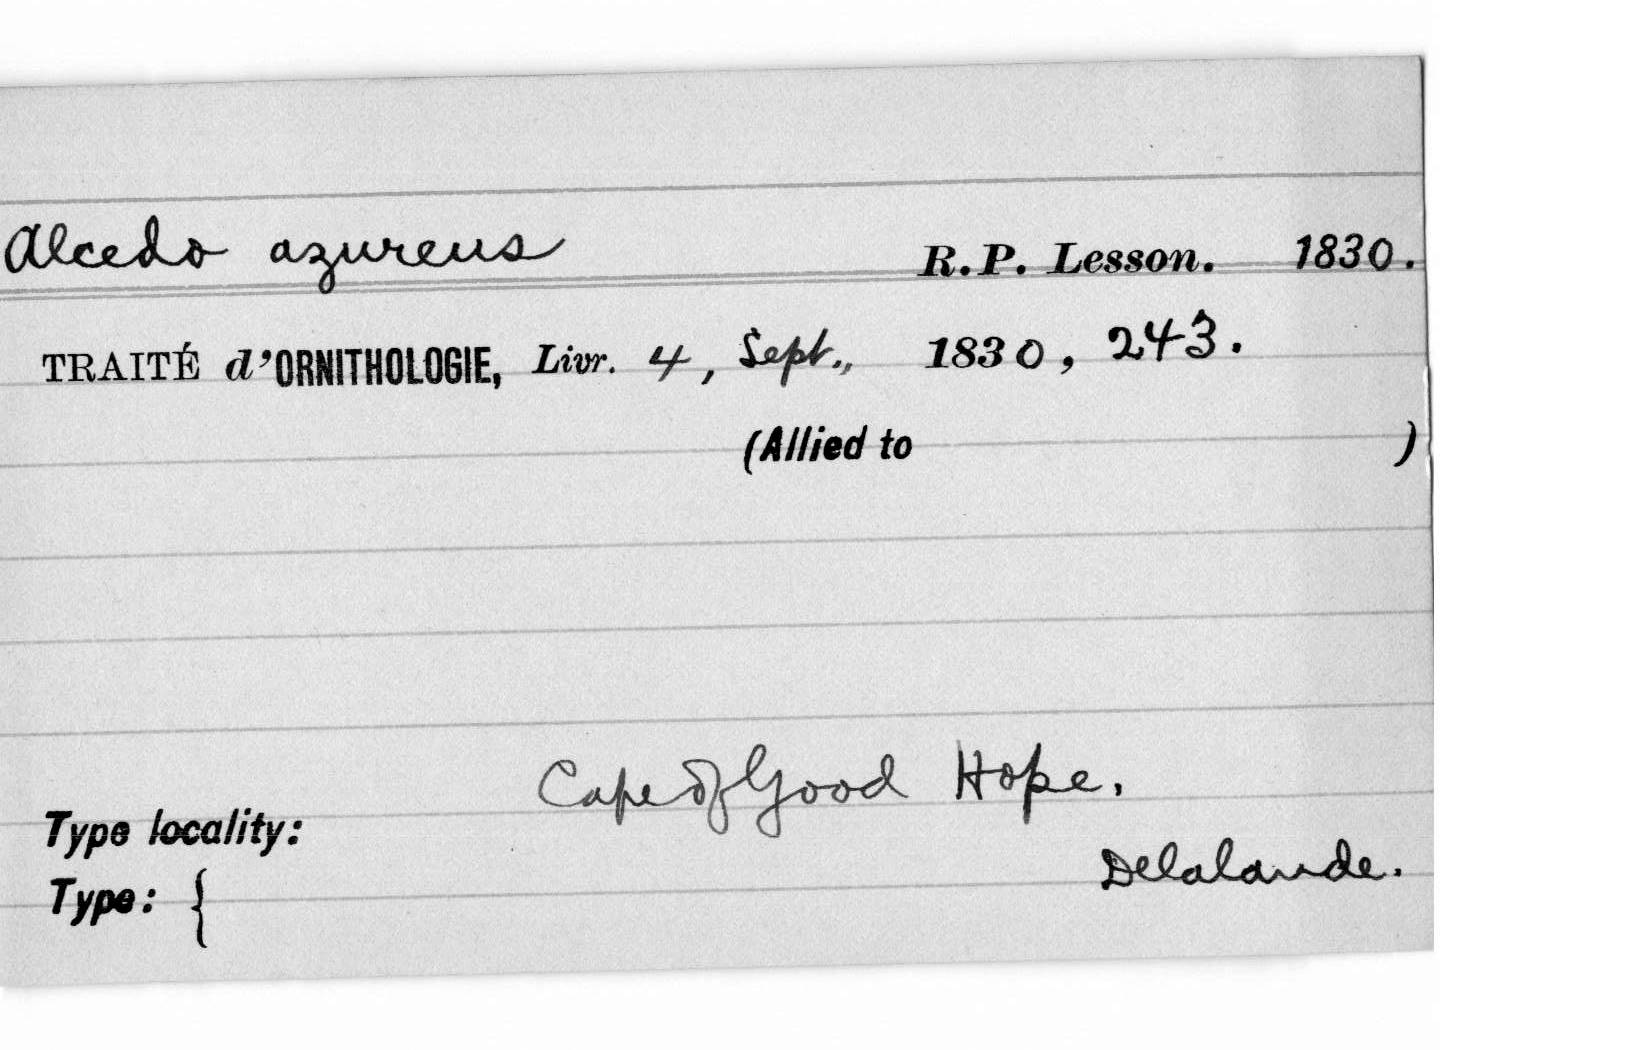 Alcedo azureus R.P. Lesson. 1830.
TRAITÉ d'ORNITHOLOGIE, Livr. 4, Sept., 1830, 243.
(Allied to )
Cape of Good Hope.
Type locality:
Delalande.
Type: {